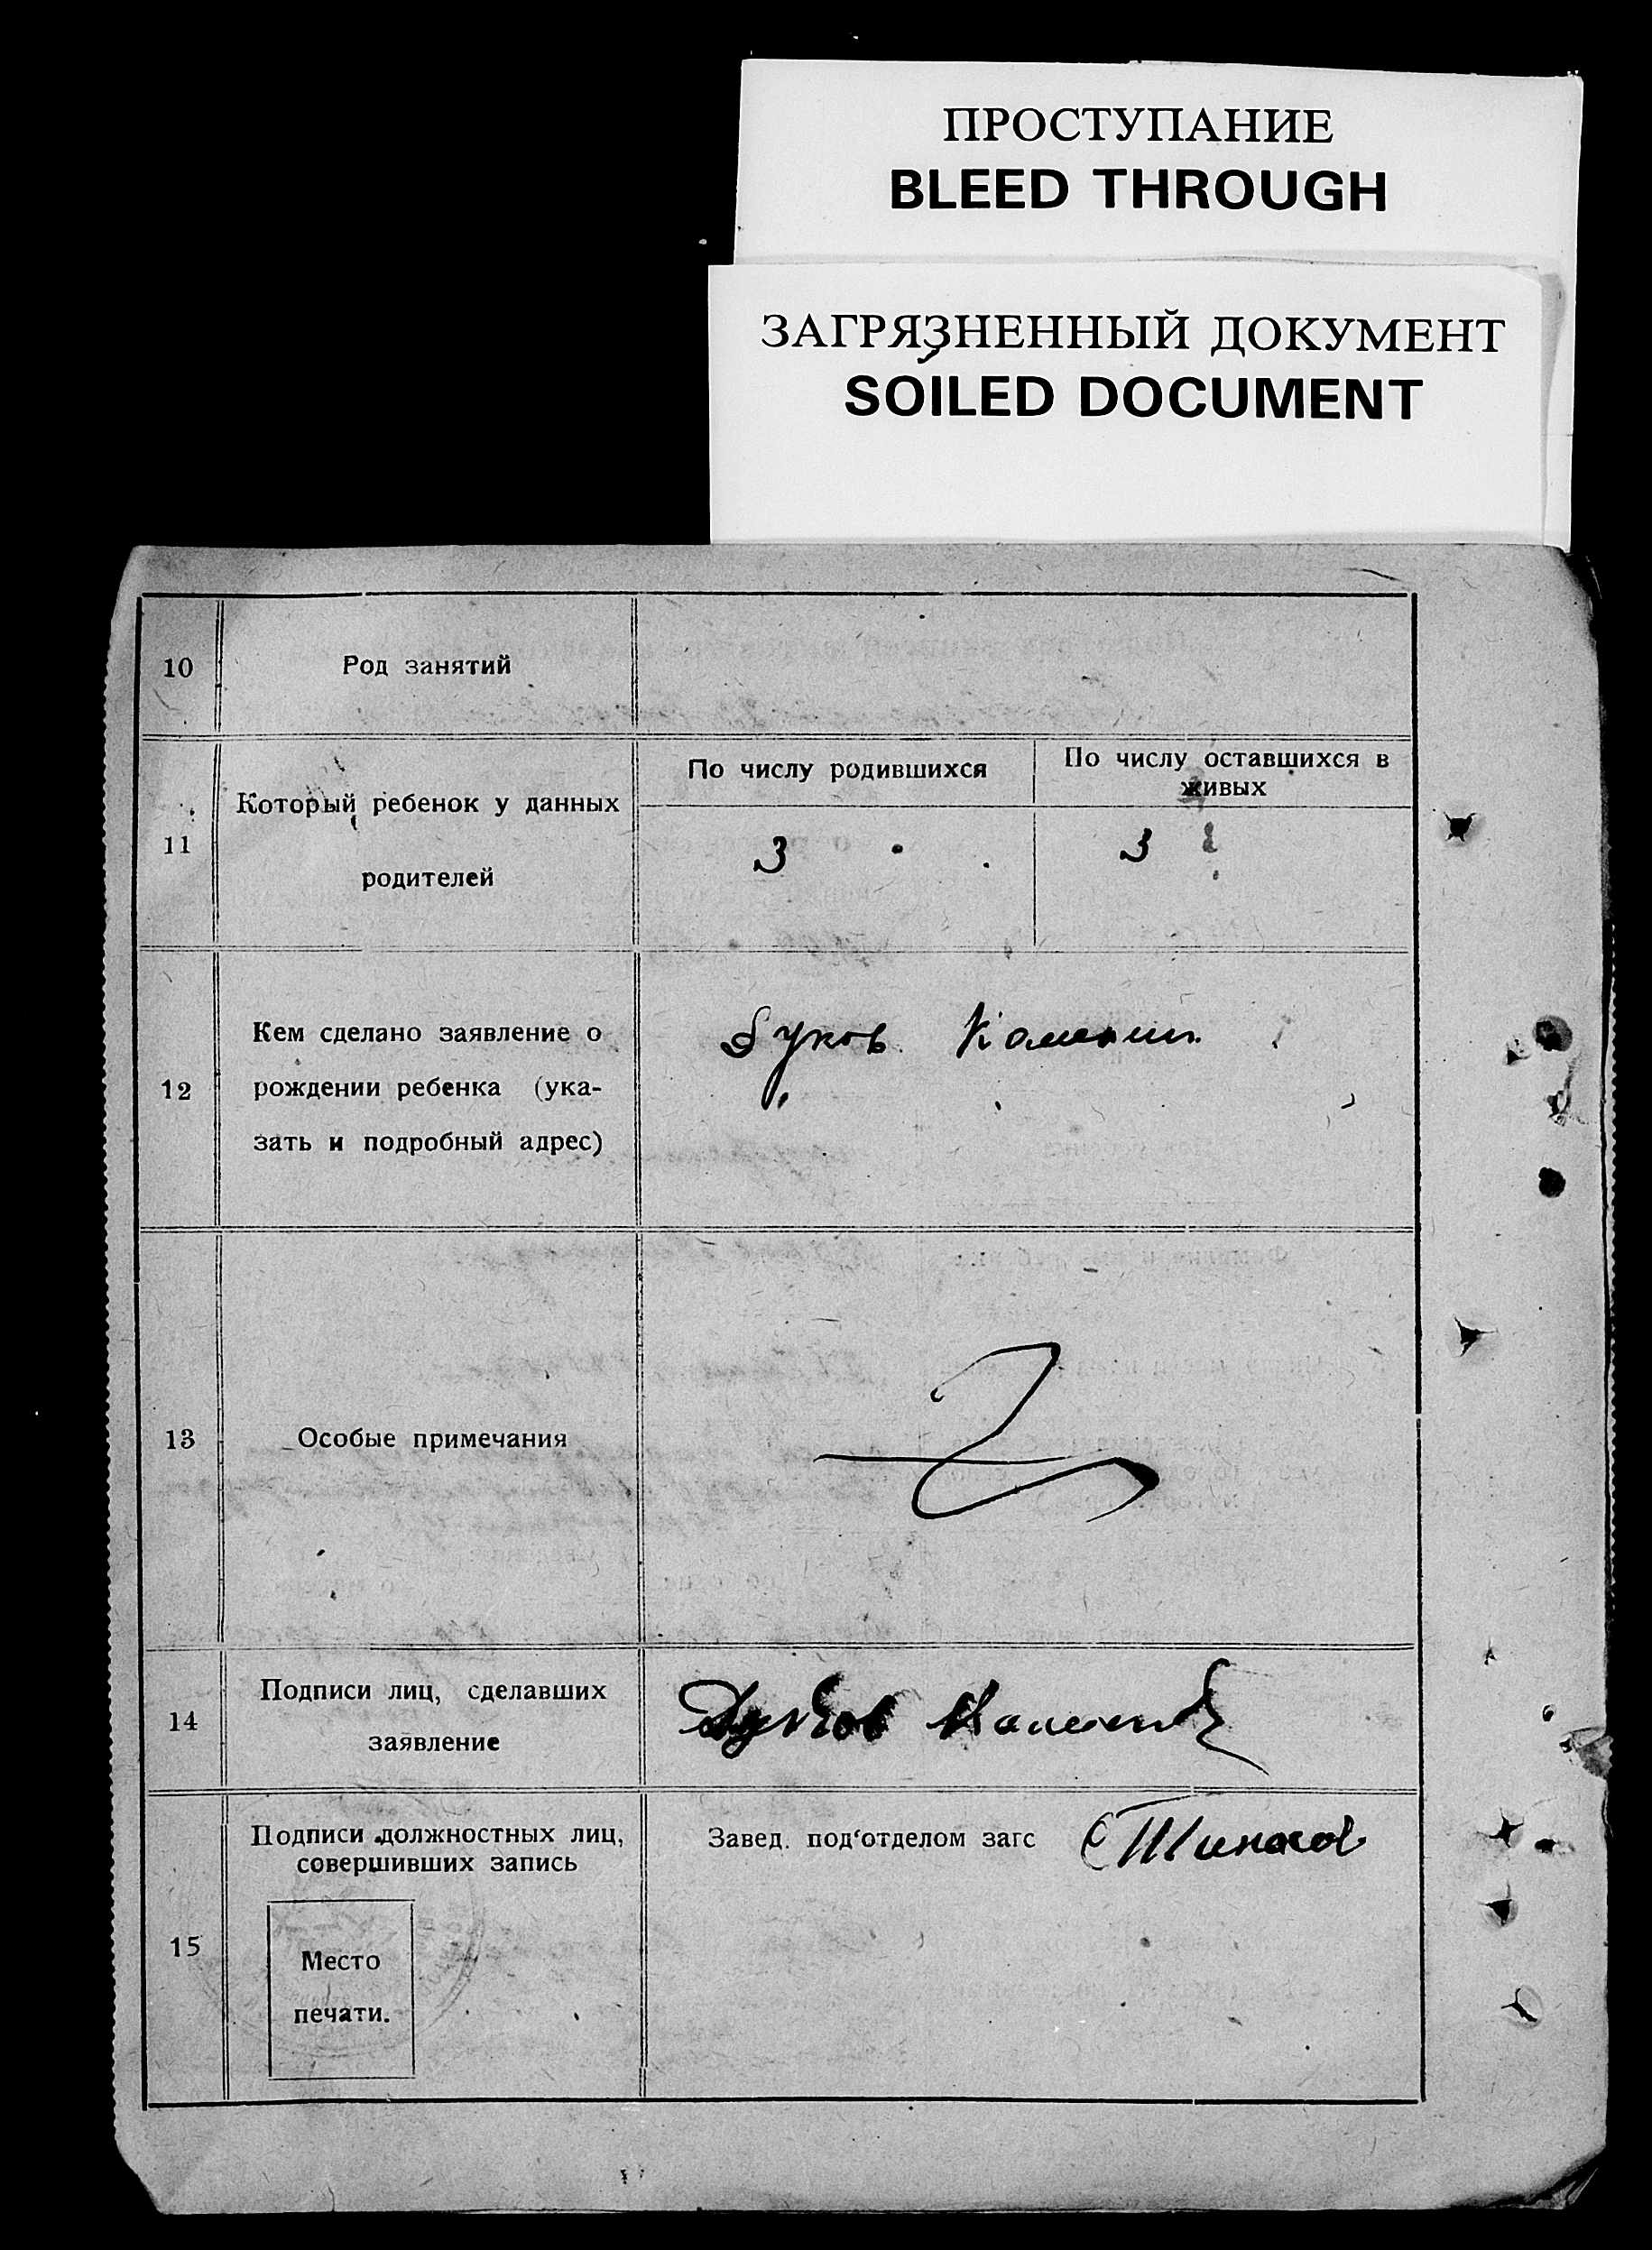 ПРОСТУПАНИЕ
BLEED THROUGH
ЗАГРЯЗНЕННЫЙ ДОКУМЕНТ
SOILED DOCUMENT
10
Род занятий
11
Который ребенок у данных
родителей
По числу родившихся
По числу оставшихся в
живых
3
3
12
Кем сделано заявление о
рождении ребенка (ука-
зать и подробный адрес)
13
Особые примечания
14
Подписи лиц, сделавших
заявление
15
Подписи должностных лиц,
совершивших запись
Место
печати.
Завед. под'отделом загс